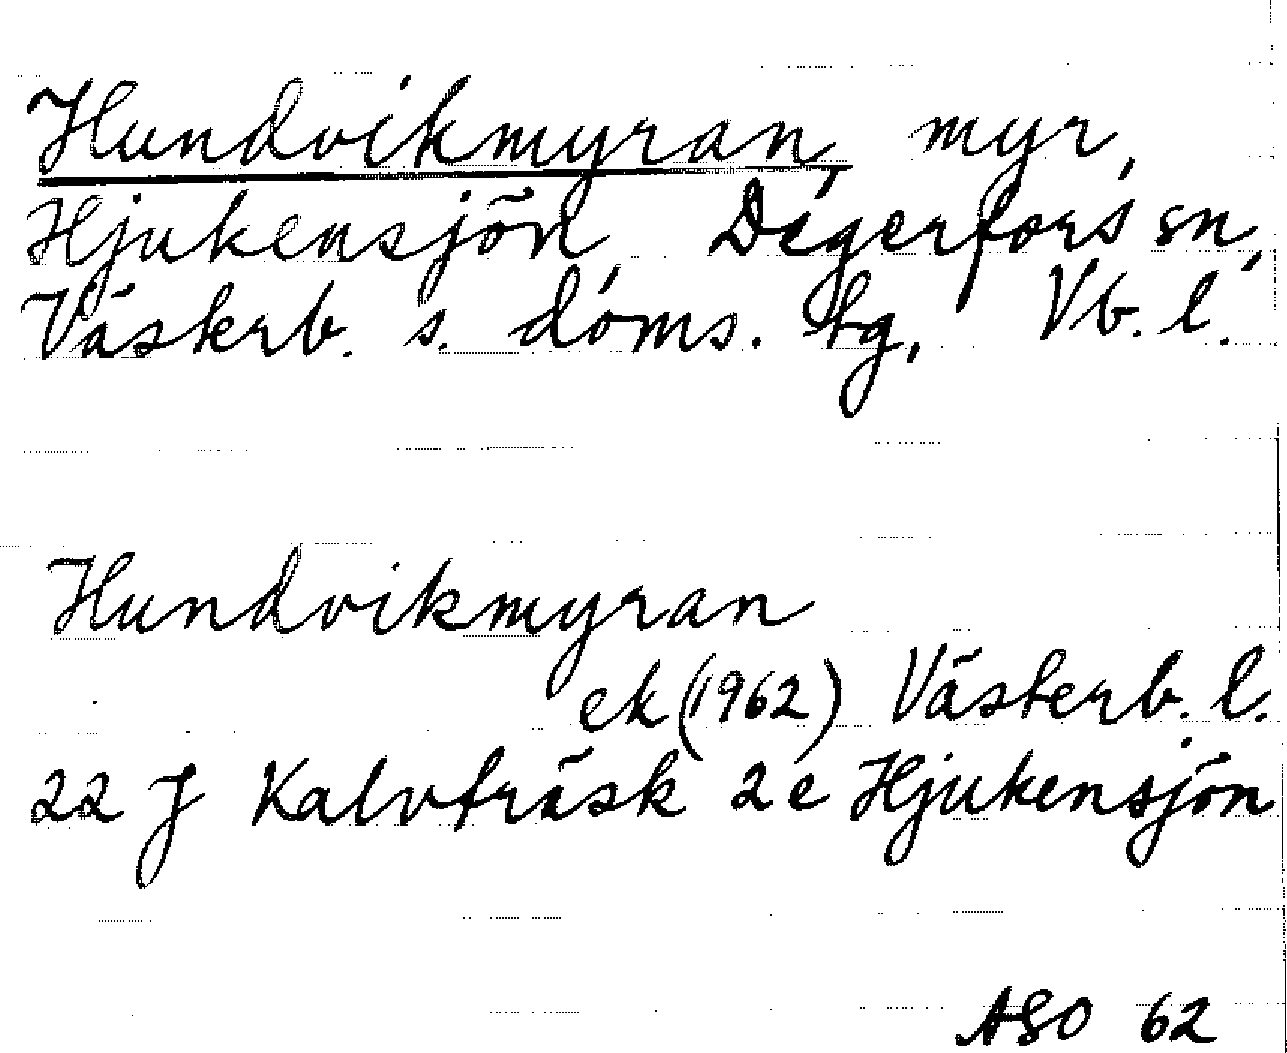 Hundvikmyran, myr,
Hjukensjön Degerfors sn,
Västerb. s. doms. tg, Vb. l.
Hundvikmyran
ek (1962) Västerb. l.
22 J Kalvträsk 2 e Hjukensjön
ASO 62